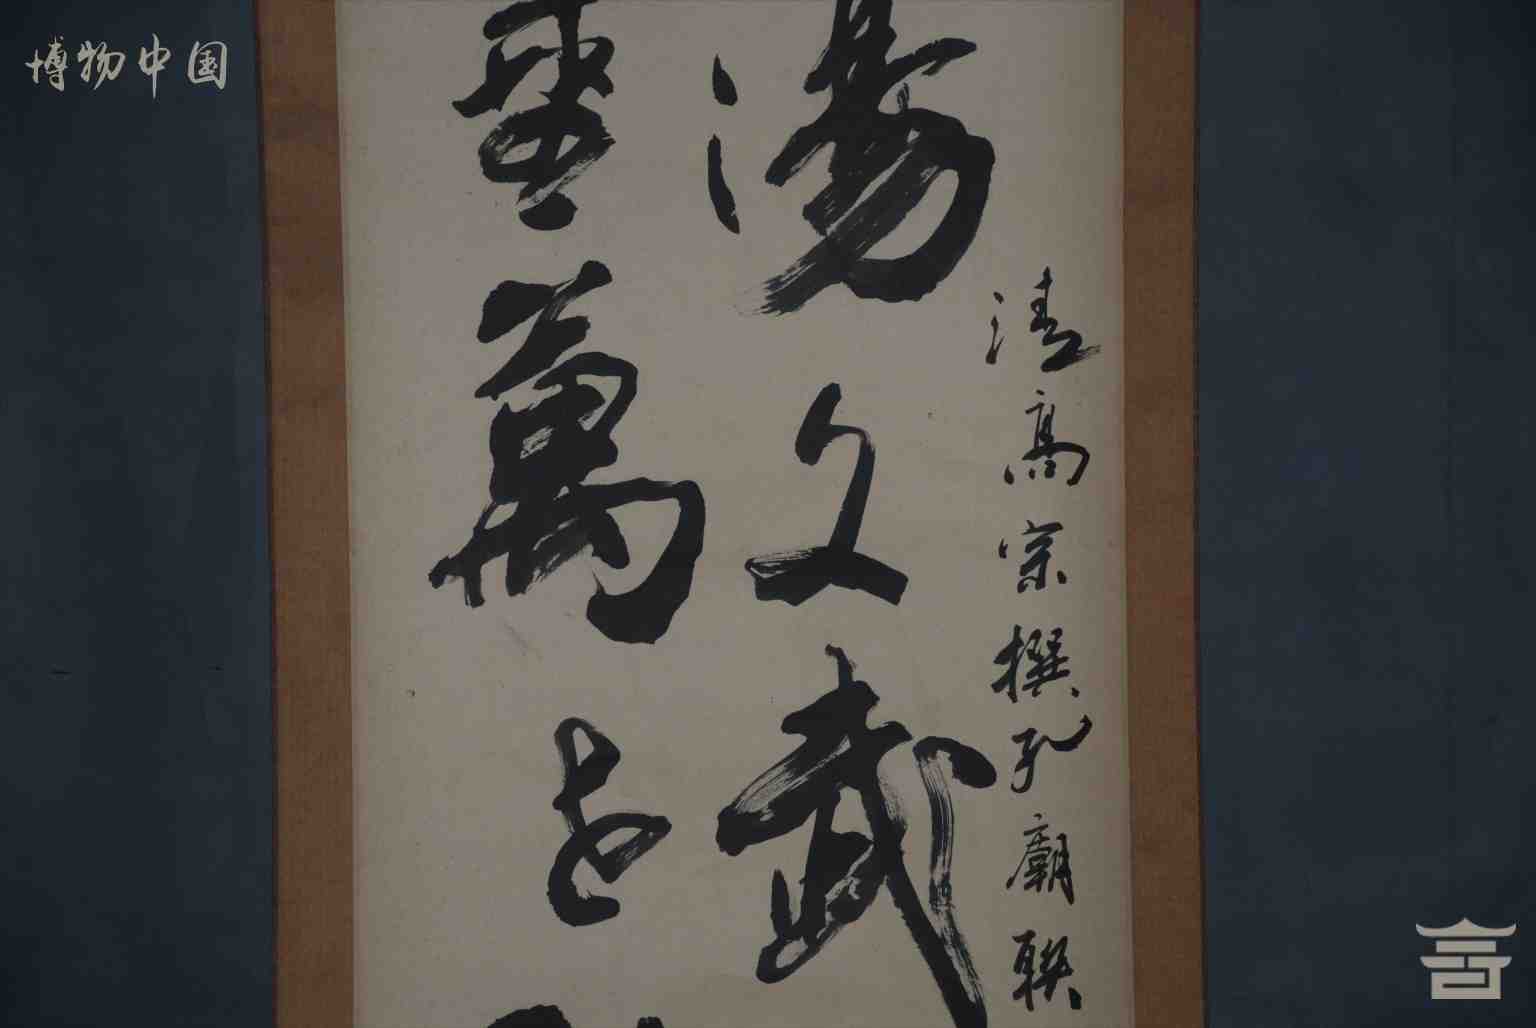 博物中国
清高宗撰孔廟聯
湯文武
垂萬世